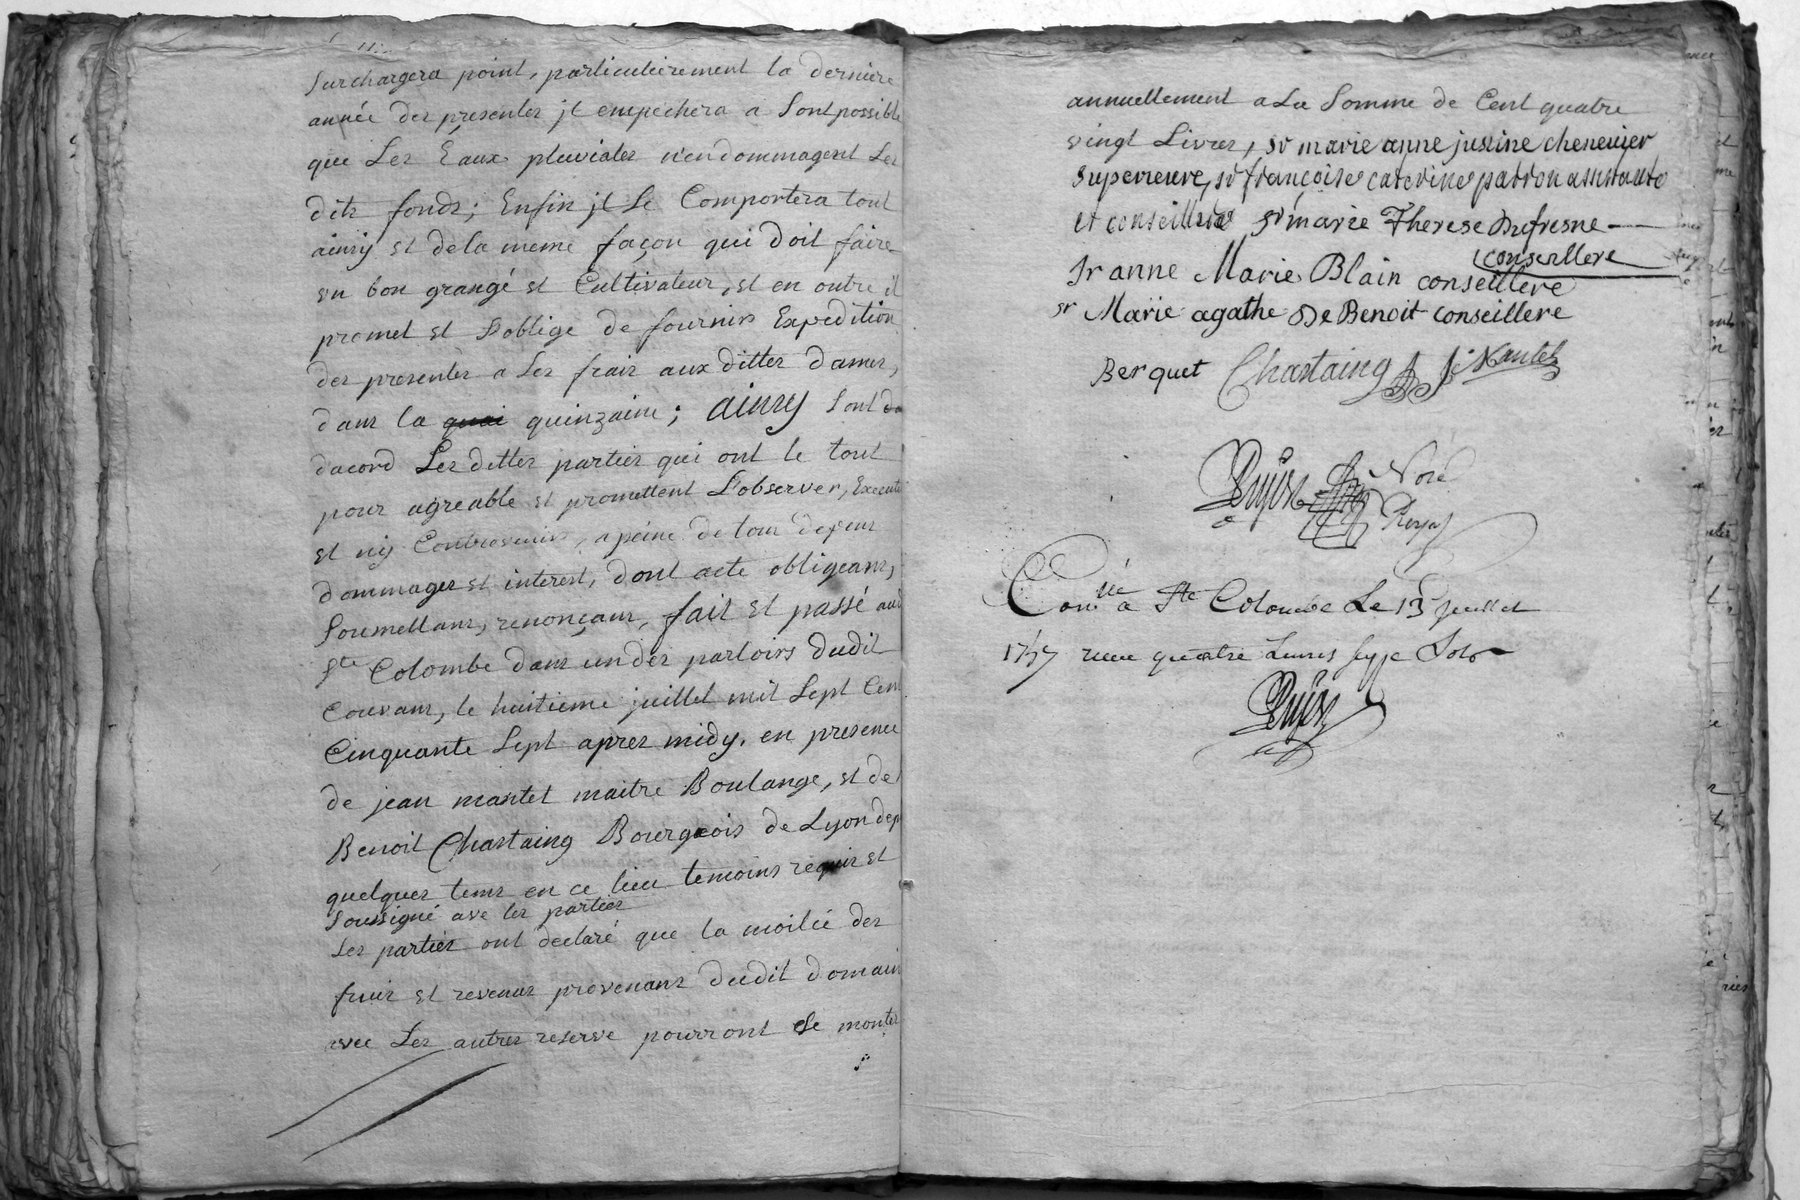 surchargera point, particulierement la derniere
année des presentes jl empechera a sont possible
que Les Eaux pluviales n'endommagent Les
dits fonds; Enfin jl Se Comportera tout
ainsy et de la meme façon qui doit faire
un bon grangé et Cultivateur, et en outre il
promet et s'oblige de fournir Expedition
des presentes a ses frais aux dittes dames,
dans la quai quinzaine; ainsy sont da
dacord Les dittes parties qui ont le tout
pour agreable et promettent L'observer, Execute
et ny Contrevenir, a peine de tous depens
dommages et interest, dont acte obligeans,
soumettans, renonçans, fait et passé aud
Ste Colombe dans un des parloirs dudit
Couvans, le huitieme juillet mil sept Cent
Cinquante sept apres midy, en presence
de jean mantet maitre Boulange, et de
Benoit Chastaing Bourgeois de Lyon dep
quelques tems en ce lieu temoins requis et
soussigné ave les parties
Les parties ont declaré que la moitié des
fruis et revenus provenans dudit domain
avec Les autres reserve pourront se monter
annuellement a La somme de Cent quatre
vingt Livres, sr marie anne justine chenevier
superieure, sr françoise caterine patron assistante
et conseillere sr marie Therese Dufresne
conseillere
sr anne Marie Blain conseillere
sr Marie agathe De Benoit conseillere
Berquet Chastaing J. Mantet
Dujon Noré
Royal
Conllé a Ste Colombe Le 13 juillet
1757 recu quatre Livres sept sols
Dujon